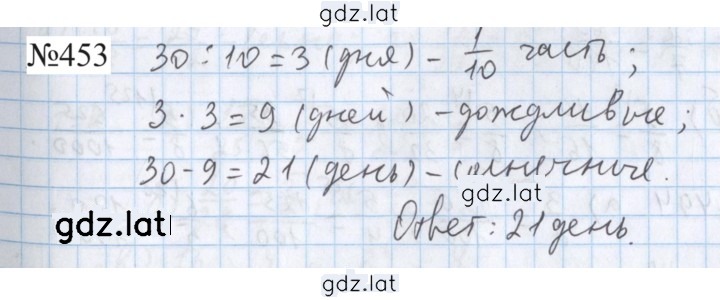 gdz.lat
№453 30 : 10 = 3 (дня) - 1/10 часть;
3 · 3 = 9 (дней) - дождливые;
30 - 9 = 21 (день) - солнечные.
gdz.lat
gdz.lat
Ответ: 21 день.
gdz.lat